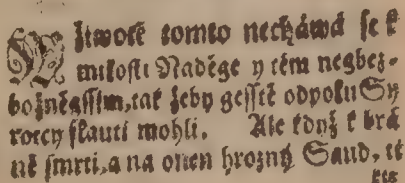 W Žiwotě tomto nechává se k
milosti Naděge y těm negbez-
božněgssjm, tak žeby gesstě odpolu Sy
rotcy stauti mohli. Ale když k brá
ně smrti, a na onen hrozný Saud, té